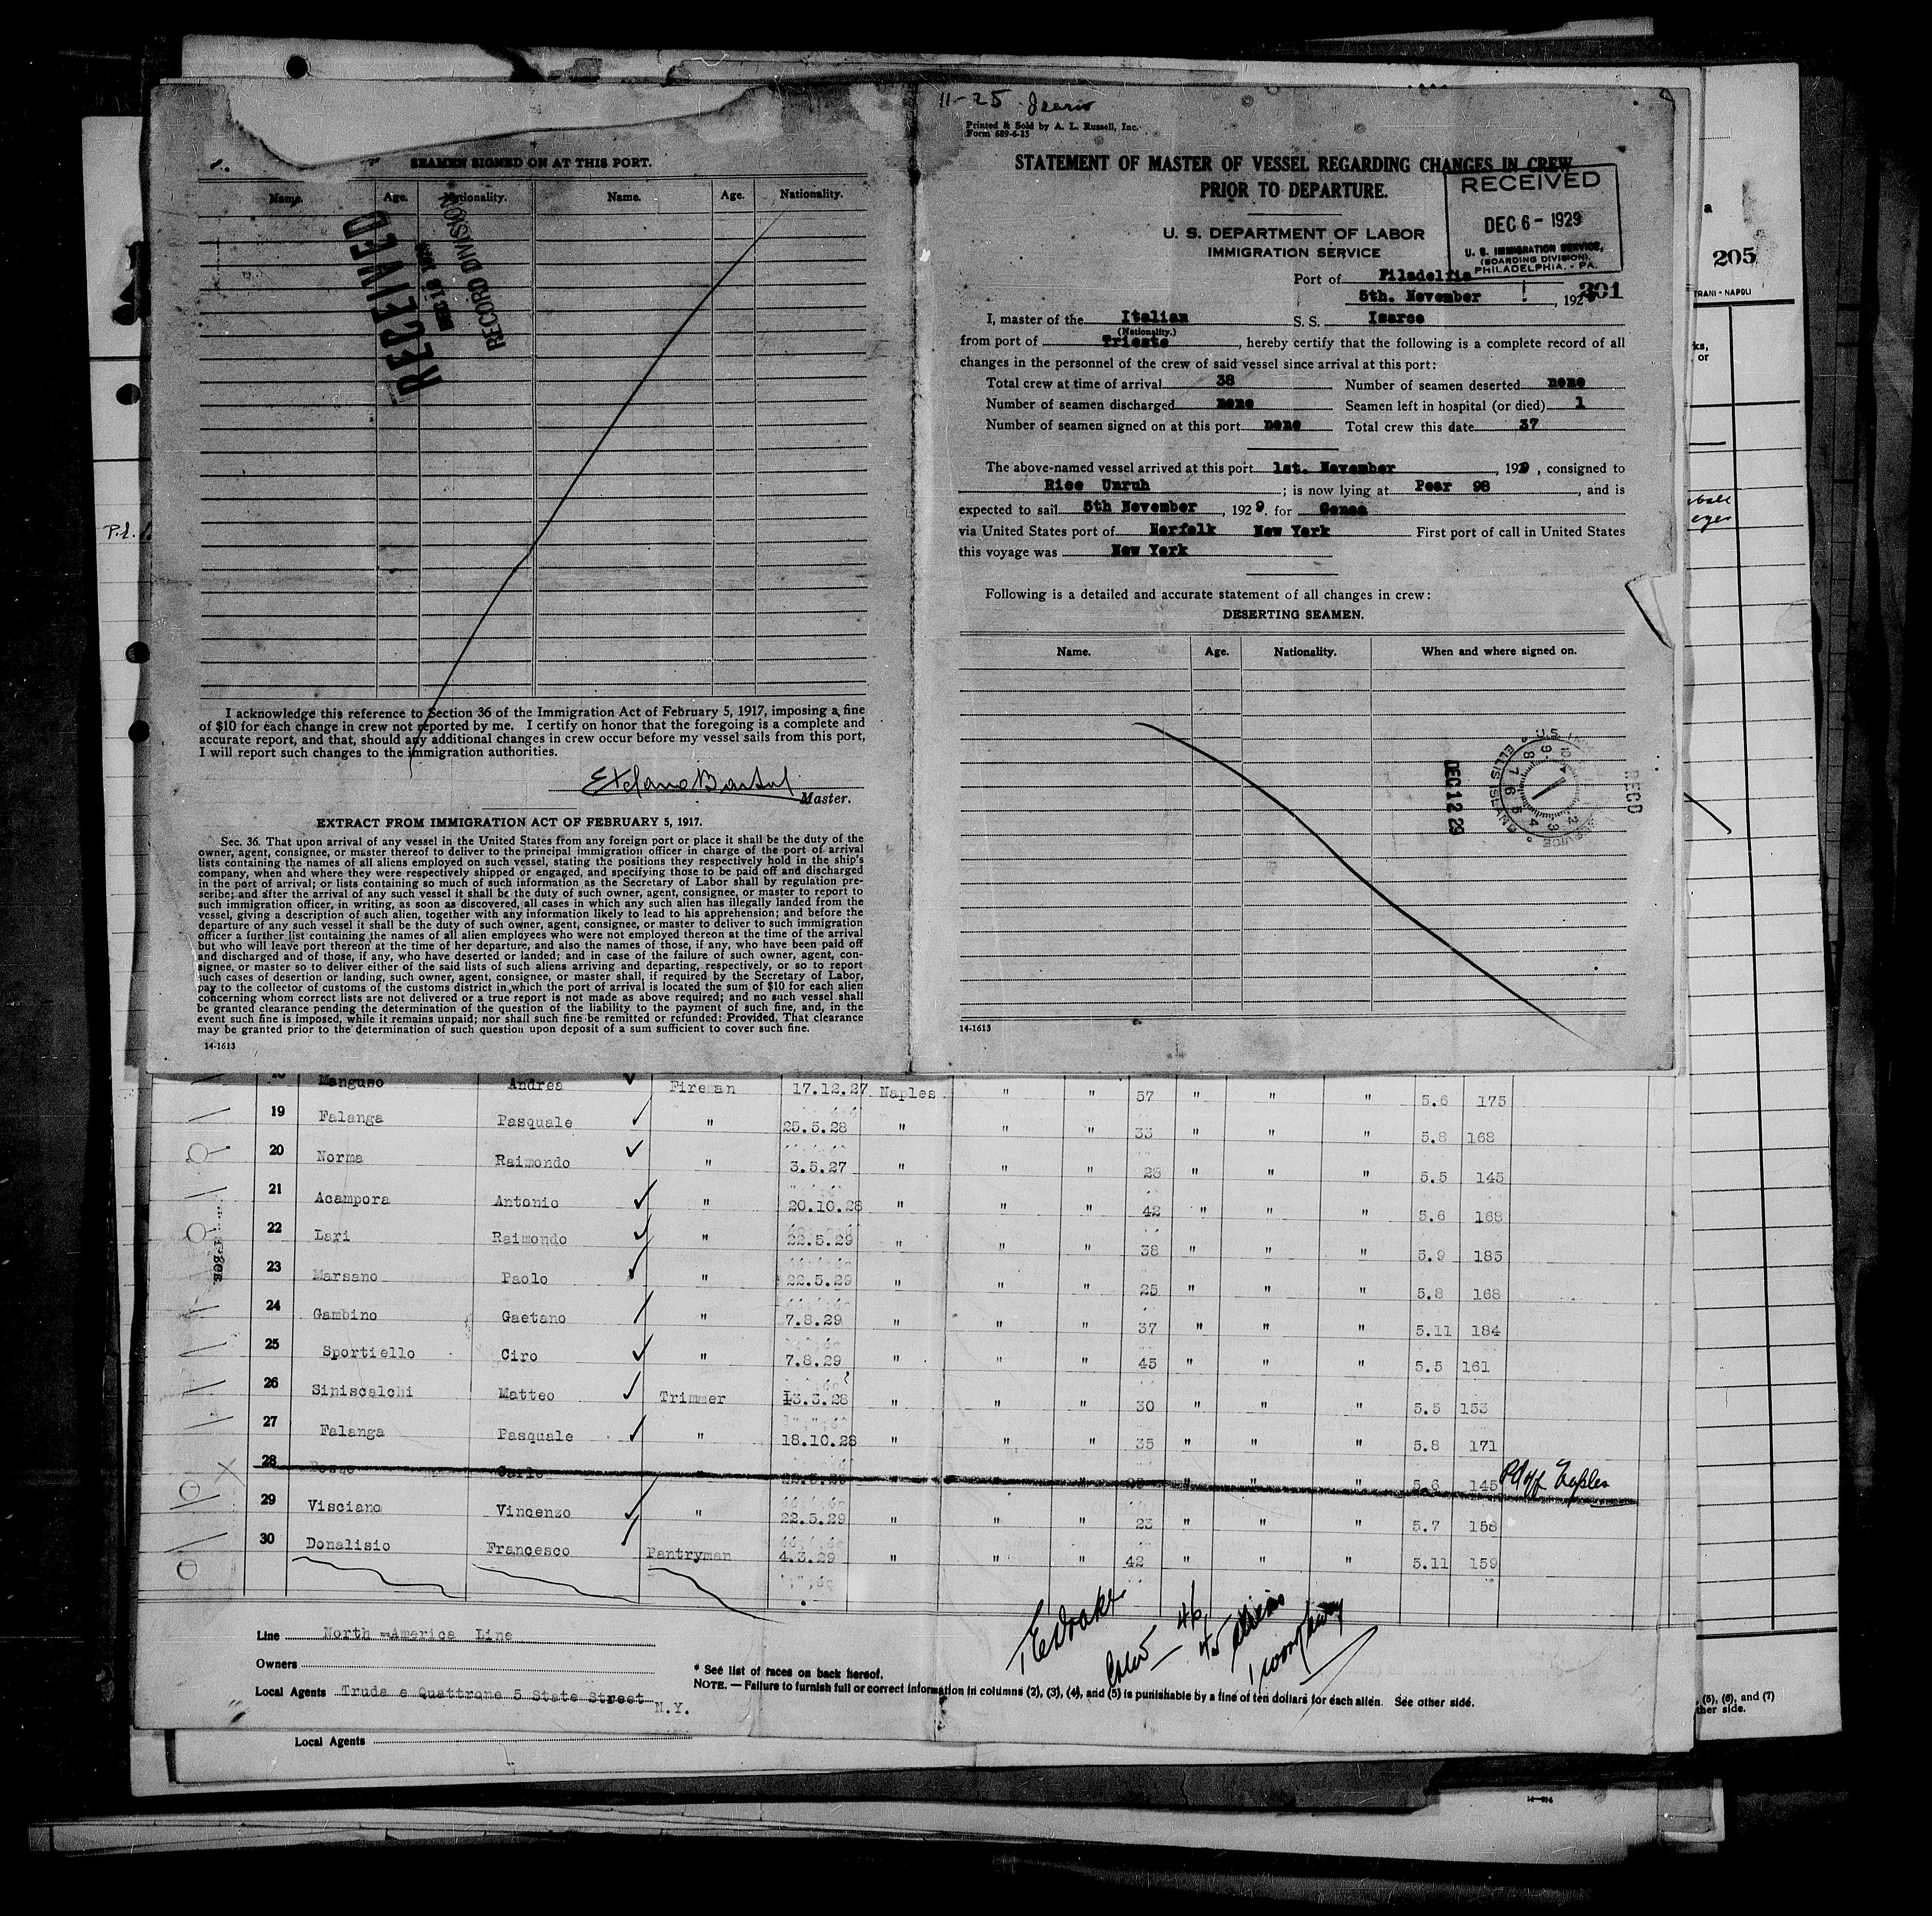 SEAMEN SIGNED ON AT THIS PORT.
Name. Age. Nationality. Name. Age. Nationality.
RECEIVED
RECORD DIVISION
I acknowledge this reference to Section 36 of the Immigration Act of February 5, 1917, imposing a fine
of $10 for each change in crew not reported by me. I certify on honor that the foregoing is a complete and
accurate report, and that, should any additional changes in crew occur before my vessel sails from this port,
I will report such changes to the immigration authorities.
Master.
EXTRACT FROM IMMIGRATION ACT OF FEBRUARY 5, 1917.
Sec. 36. That upon arrival of any vessel in the United States from any foreign port or place it shall be the duty of the
owner, agent, consignee, or master thereof to deliver to the principal immigration officer in charge of the port of arrival
lists containing the names of all aliens employed on such vessel, stating the positions they respectively hold in the ship's
company, when and where they were respectively shipped or engaged, and specifying those to be paid off and discharged
in the port of arrival; or lists containing so much of such information as the Secretary of Labor shall by regulation pre-
scribe; and after the arrival of any such vessel it shall be the duty of such owner, agent, consignee, or master to report to
such immigration officer, in writing, as soon as discovered, all cases in which any such alien has illegally landed from the
vessel, giving a description of such alien, together with any information likely to lead to his apprehension; and before the
departure of any such vessel it shall be the duty of such owner, agent, consignee, or master to deliver to such immigration
officer a further list containing the names of all alien employees who were not employed thereon at the time of the arrival
but who will leave port thereon at the time of her departure, and also the names of those, if any, who have been paid off
and discharged and of those, if any, who have deserted or landed; and in case of the failure of such owner, agent, con-
signee, or master so to deliver either of the said lists of such aliens arriving and departing, respectively, or so to report
such cases of desertion or landing, such owner, agent, consignee, or master shall, if required by the Secretary of Labor,
pay to the collector of customs of the customs district in which the port of arrival is located the sum of $10 for each alien
concerning whom correct lists are not delivered or a true report is not made as above required; and no such vessel shall
be granted clearance pending the determination of the question of the liability to the payment of such fine, and, in the
event such fine is imposed, while it remains unpaid; nor shall such fine be remitted or refunded: Provided, That clearance
may be granted prior to the determination of such question upon deposit of a sum sufficient to cover such fine.
14-1613
11-25
Printed & Sold by A. L. Russell, Inc.
Form 689-6-25
STATEMENT OF MASTER OF VESSEL REGARDING CHANGES IN CREW
PRIOR TO DEPARTURE.
RECEIVED
DEC 6 - 1929
U. S. IMMIGRATION SERVICE,
(BOARDING DIVISION),
PHILADELPHIA. - PA.
U. S. DEPARTMENT OF LABOR
IMMIGRATION SERVICE
Port of Filadelfia
5th. November , 192
301
I, master of the Italian S. S. Isarco
(Nationality.)
from port of Trieste , hereby certify that the following is a complete record of all
changes in the personnel of the crew of said vessel since arrival at this port:
Total crew at time of arrival 38 Number of seamen deserted none
Number of seamen discharged none Seamen left in hospital (or died) 1
Number of seamen signed on at this port none Total crew this date 37
The above-named vessel arrived at this port 1st. November , 1929 , consigned to
Rice Unruh ; is now lying at Pear 98 , and is
expected to sail 5th November , 1929, for Genoa
via United States port of Norfolk New York First port of call in United States
this voyage was New York
Following is a detailed and accurate statement of all changes in crew:
DESERTING SEAMEN.
Name. Age. Nationality. When and where signed on.
DEC 12 29
ELLIS ISLAND
RECD
14-1613
205
TRANI - NAPOLI
Manguso Andrea Fireman 17.12.27 Naples " " 57 " " " 5.6 175
19 Falanga Pasquale " 25.5.28 " " " 33 " " " 5.8 168
20 Norma Raimondo " 3.5.27 " " " 28 " " " 5.5 145
21 Acampora Antonio " 20.10.28 " " " 42 " " " 5.6 168
22 Lari Raimondo " 22.5.29 " " " 38 " " " 5.9 185
23 Marsano Paolo " 22.5.29 " " " 25 " " " 5.8 168
24 Gambino Gaetano " 7.8.29 " " " 37 " " " 5.11 184
25 Sportiello Ciro " 7.8.29 " " " 45 " " " 5.5 161
26 Siniscalchi Matteo Trimmer 13.3.28 " " " 30 " " " 5.5 153
27 Falanga Pasquale " 18.10.28 " " " 35 " " " 5.8 171
28 Carlo " " " " " " " 5.6 145 Pd off Naples
29 Visciano Vincenzo " 22.5.29 " " " 23 " " " 5.7 158
30 Donalisio Francesco Pantryman 4.3.29 " " " 42 " " " 5.11 159
Line North America Line
Owners
Local Agents Truda e Quattrone 5 State Street
N.Y.
* See list of races on back hereof.
NOTE. — Failure to furnish full or correct information in columns (2), (3), (4), and (5) is punishable by a fine of ten dollars for each alien. See other side.
Local Agents
(5), (6), and (7)
ther side.